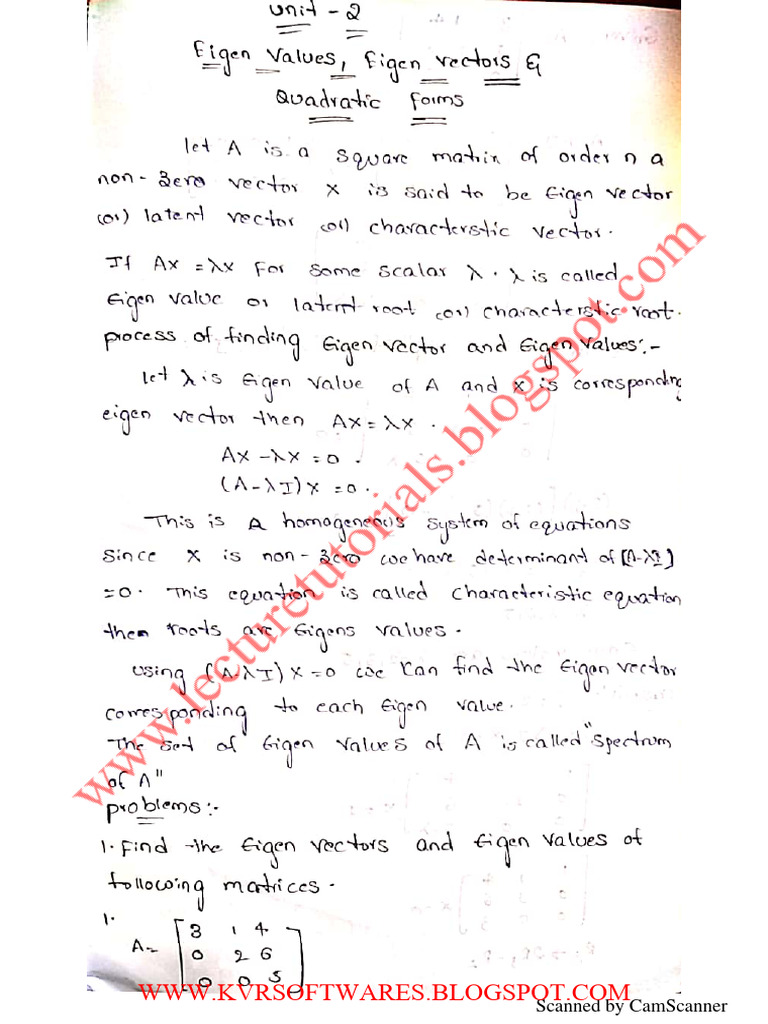 Unit - 2
Eigen Values, Eigen vectors &
Quadratic Forms
let A is a square matrix of order n a
non-zero vector x is said to be Eigen vector
(or) latent vector (or) characterstic vector.
If Ax = λx For some scalar λ. λ is called
Eigen value or latent root (or) characterstic root.
process of finding Eigen vector and Eigen values:-
let λ is Eigen value of A and x is corresponding
eigen vector then Ax = λx.
Ax - λx = 0.
(A - λI)x = 0.
This is A homogeneous system of equations
since x is non-zero we have determinant of [A-λI]
=0. This equation is called characteristic equation
then roots are Eigens values.
using (A-λI)x=0 we kan find the Eigen vector
corresponding to each Eigen value.
The set of Eigen values of A is called "spectrum
of A"
problems:-
1. Find the Eigen vectors and Eigen values of
following matrices.
1.
A= [3 1 4
0 2 6
0 0 5]
www.lecturetutorials.blogspot.com
WWW.KVRSOFTWARES.BLOGSPOT.COM
Scanned by CamScanner